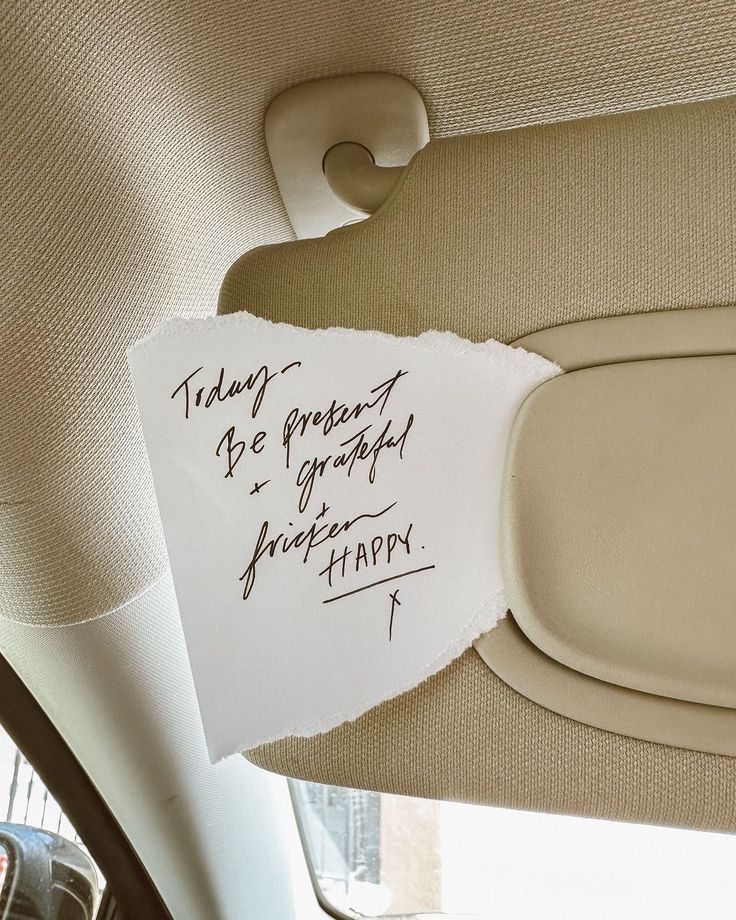 Today -
Be present
+ grateful
+
fricken
HAPPY.
x